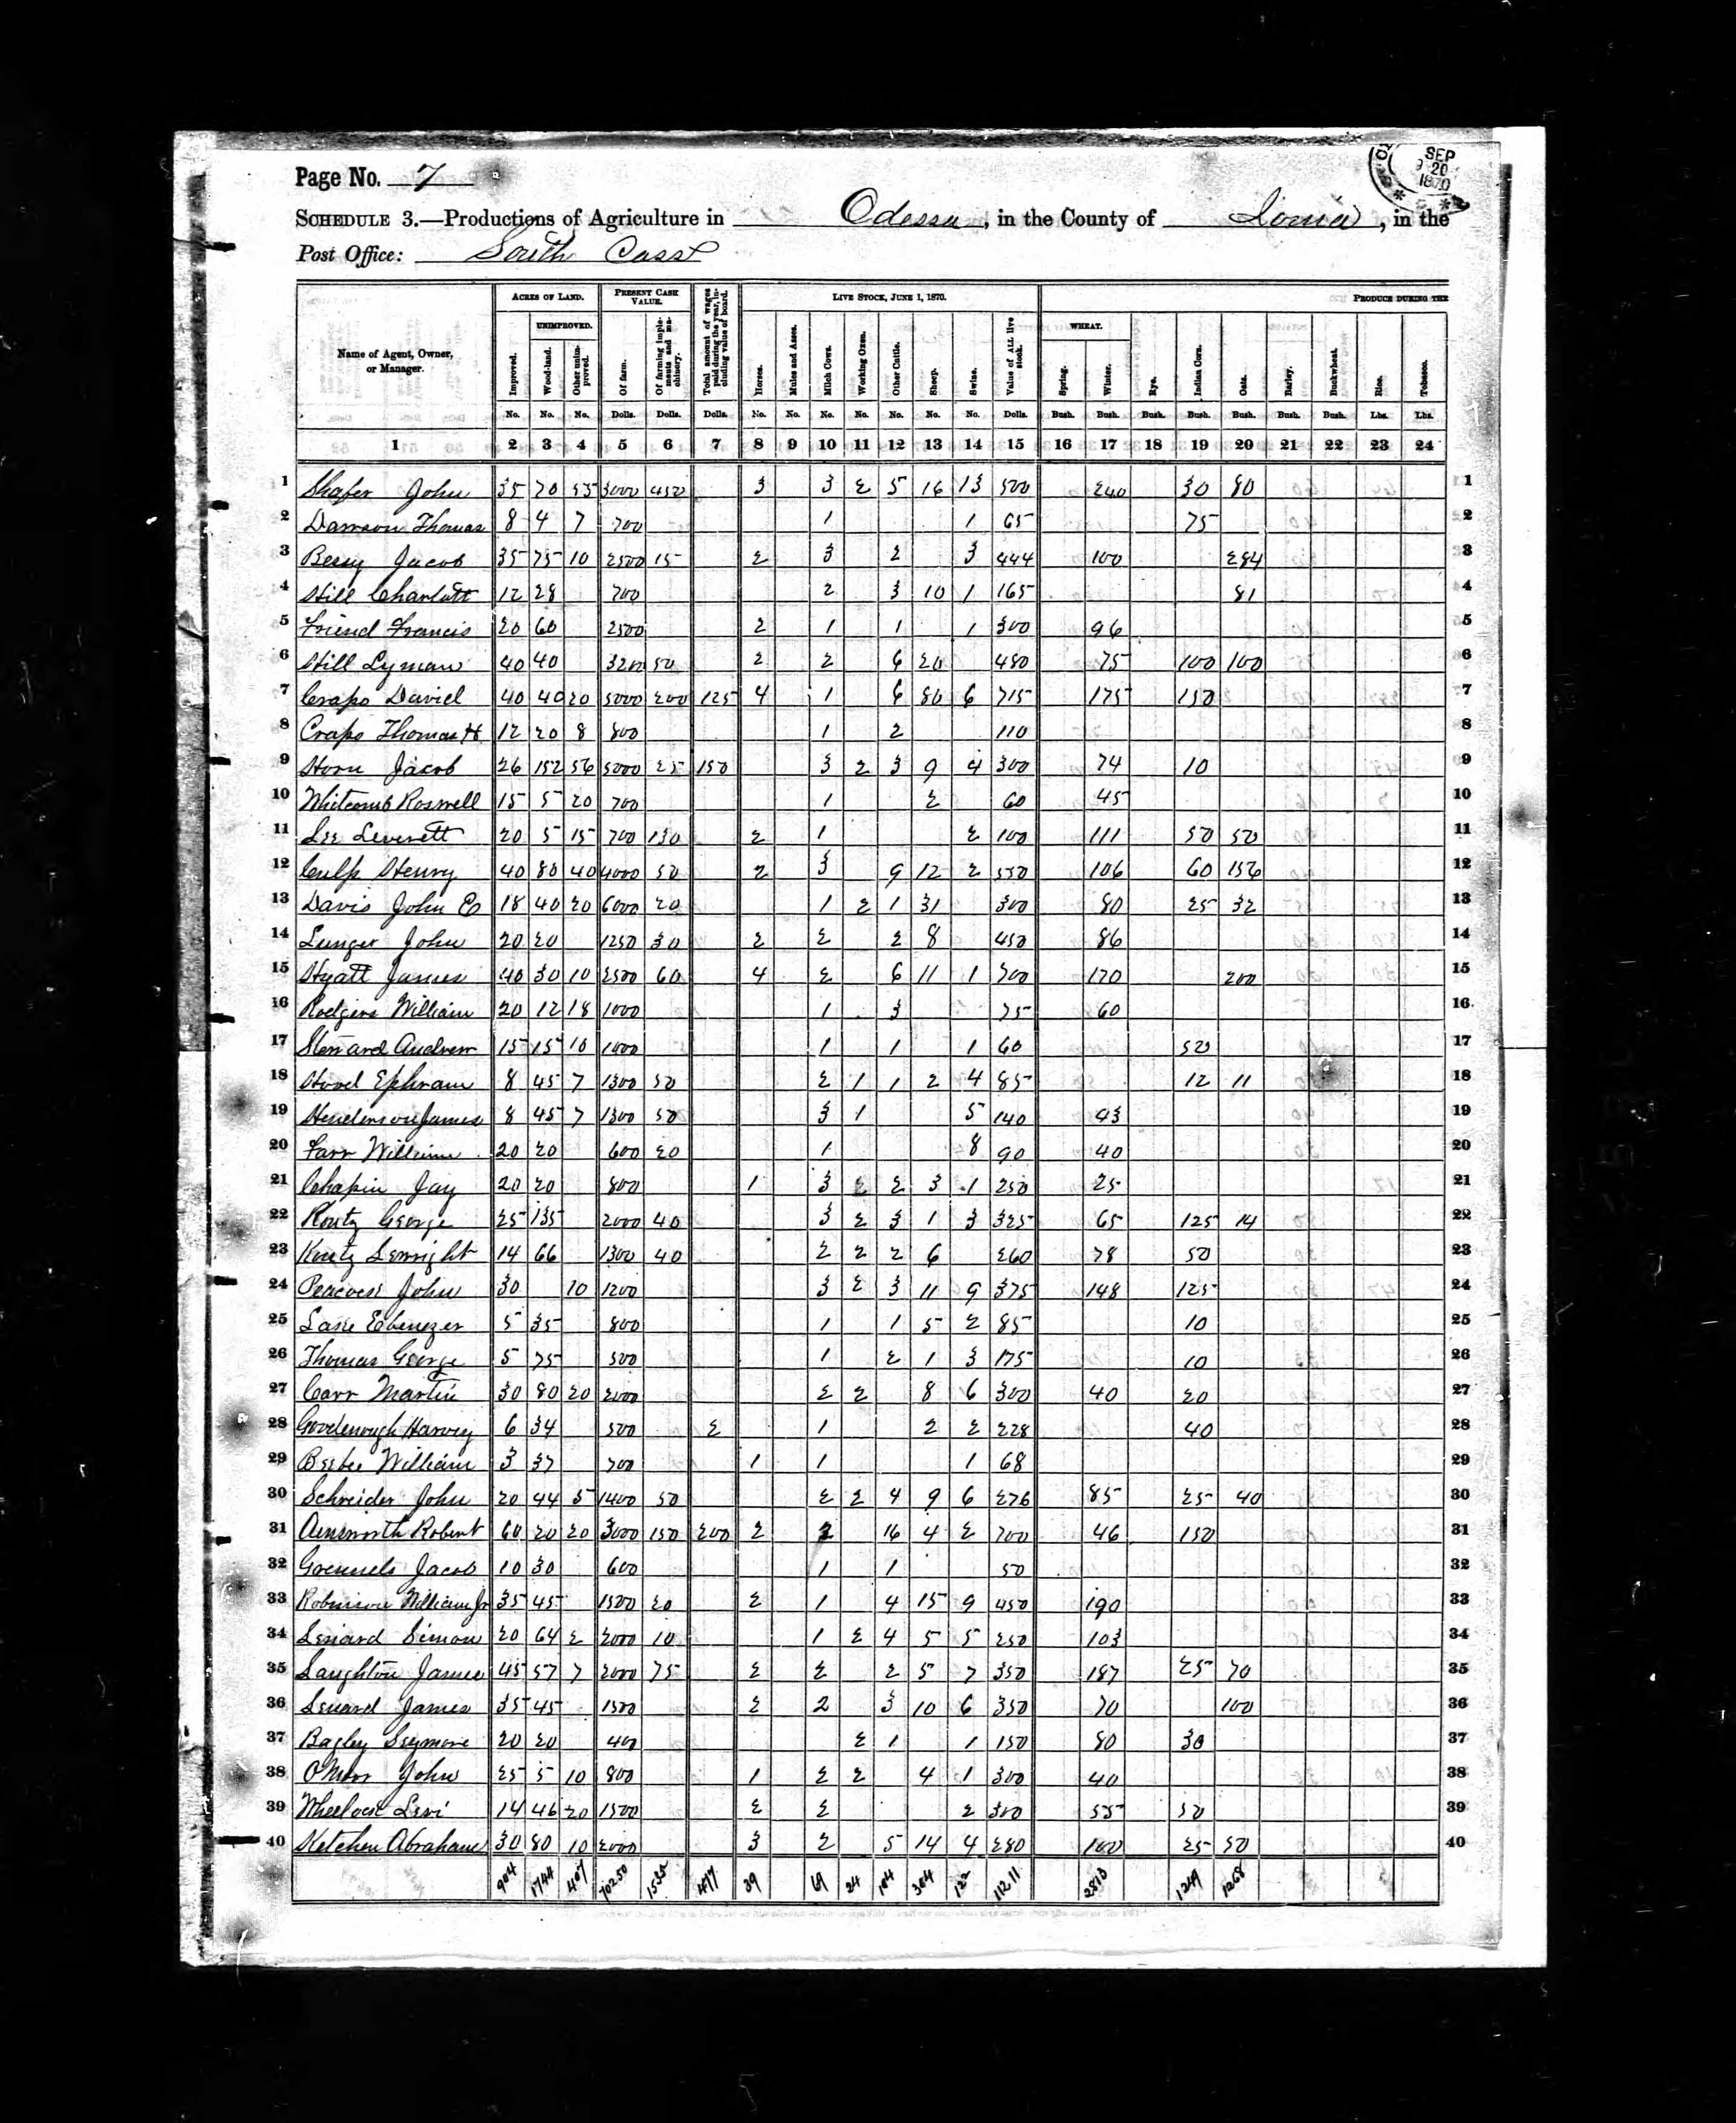 Page No. 7
SEP 20 1870
SCHEDULE 3.—Productions of Agriculture in Odessa, in the County of Ionia, in the
Post Office: South Cass
Name of Agent, Owner, or Manager. ACRES OF LAND. PRESENT CASH VALUE. Total amount of wages paid during the year, including value of board. LIVE STOCK, JUNE 1, 1870. PRODUCE DURING THE
UNIMPROVED. WHEAT.
Improved. Wood-land. Other unimproved. Of farm. Of farming implements and machinery. Horses. Mules and Asses. Milch Cows. Working Oxen. Other Cattle. Sheep. Swine. Value of ALL live stock. Spring. Winter. Rye. Indian Corn. Oats. Barley. Buckwheat. Rice. Tobacco.
No. No. No. Dolls. Dolls. Dolls. No. No. No. No. No. No. No. Dolls. Bush. Bush. Bush. Bush. Bush. Bush. Bush. Lbs. Lbs.
1 2 3 4 5 6 7 8 9 10 11 12 13 14 15 16 17 18 19 20 21 22 23 24
1 Shafer John 35 70 55 3000 450 3 3 2 5 16 13 500 240 30 80 1
2 Thomas 8 4 7 700 1 1 65 75 2
3 Jacob 35 75 10 2500 15 2 3 2 3 444 100 284 3
4 Hill Charlott 12 28 700 2 3 10 1 165 81 4
5 Friend Francis 20 60 2500 2 1 1 1 300 96 5
6 Hill Lyman 40 40 3200 50 2 2 6 20 480 75 100 100 6
7 Crapo David 40 40 20 5000 200 125 4 1 6 80 6 715 175 150 7
8 Crapo Thomas H. 12 20 8 800 1 2 110 8
9 Horn Jacob 26 152 56 5000 25 150 3 2 3 9 4 300 74 10 9
10 Whitcomb Roswell 15 5 20 700 1 2 60 45 10
11 Lee Leverett 20 5 15 700 130 2 1 2 100 111 50 50 11
12 Culp Henry 40 80 40 4000 50 2 3 9 12 2 550 106 60 156 12
13 Davis John E 18 40 20 6000 20 1 2 1 31 300 80 25 32 13
14 Lunger John 20 20 1250 30 2 2 2 8 450 86 14
15 Hyatt James 40 30 10 2500 60 4 2 6 11 1 700 170 200 15
16 Rodgers William 20 12 18 1000 1 3 75 60 16
17 Andrew 15 15 10 1000 1 1 1 60 50 17
18 Ephram 8 45 7 1300 50 2 1 1 2 4 85 12 11 18
19 Henderson James 8 45 7 1300 50 3 1 5 140 43 19
20 Farr William 20 20 600 20 1 8 90 40 20
21 Chapin Jay 20 20 800 1 3 2 2 3 1 250 25 21
22 Kontz George 25 135 2000 40 3 2 3 1 3 325 65 125 14 22
23 Kontz 14 66 1300 40 2 2 2 6 260 78 50 23
24 Peacock John 30 10 1200 3 2 3 11 9 375 148 125 24
25 Ebenezer 5 35 800 1 1 5 2 85 10 25
26 Thomas George 5 75 500 1 2 1 3 175 10 26
27 Carr Martin 30 80 20 2000 2 2 8 6 300 40 20 27
28 Goodenough Harvey 6 34 500 2 1 2 2 228 40 28
29 Beebe William 3 37 700 1 1 1 68 29
30 Schreider John 20 44 5 1400 50 2 2 4 9 6 276 85 25 40 30
31 Ainsworth Robert 60 20 20 3000 150 200 2 2 16 4 2 700 46 150 31
32 Jacob 10 30 600 1 1 50 32
33 Robinson William Jr 35 45 1500 20 2 1 4 15 9 450 190 33
34 Lenard Simon 20 64 2 2000 10 1 2 4 5 5 250 103 34
35 Laughton James 45 57 7 2000 75 2 2 2 5 7 350 187 25 70 35
36 Lenard James 35 45 1500 2 2 3 10 6 350 70 100 36
37 Bagley Seymore 20 20 400 2 1 1 150 80 30 37
38 John 25 5 10 800 1 2 2 4 1 300 40 38
39 Wheelock Levi 14 46 20 1500 2 2 2 300 55 50 39
40 Ketchem Abraham 30 80 10 2000 3 2 5 14 4 280 100 25 50 40
904 1744 407 70250 1535 477 39 69 24 104 304 122 11211 2813 1249 1268